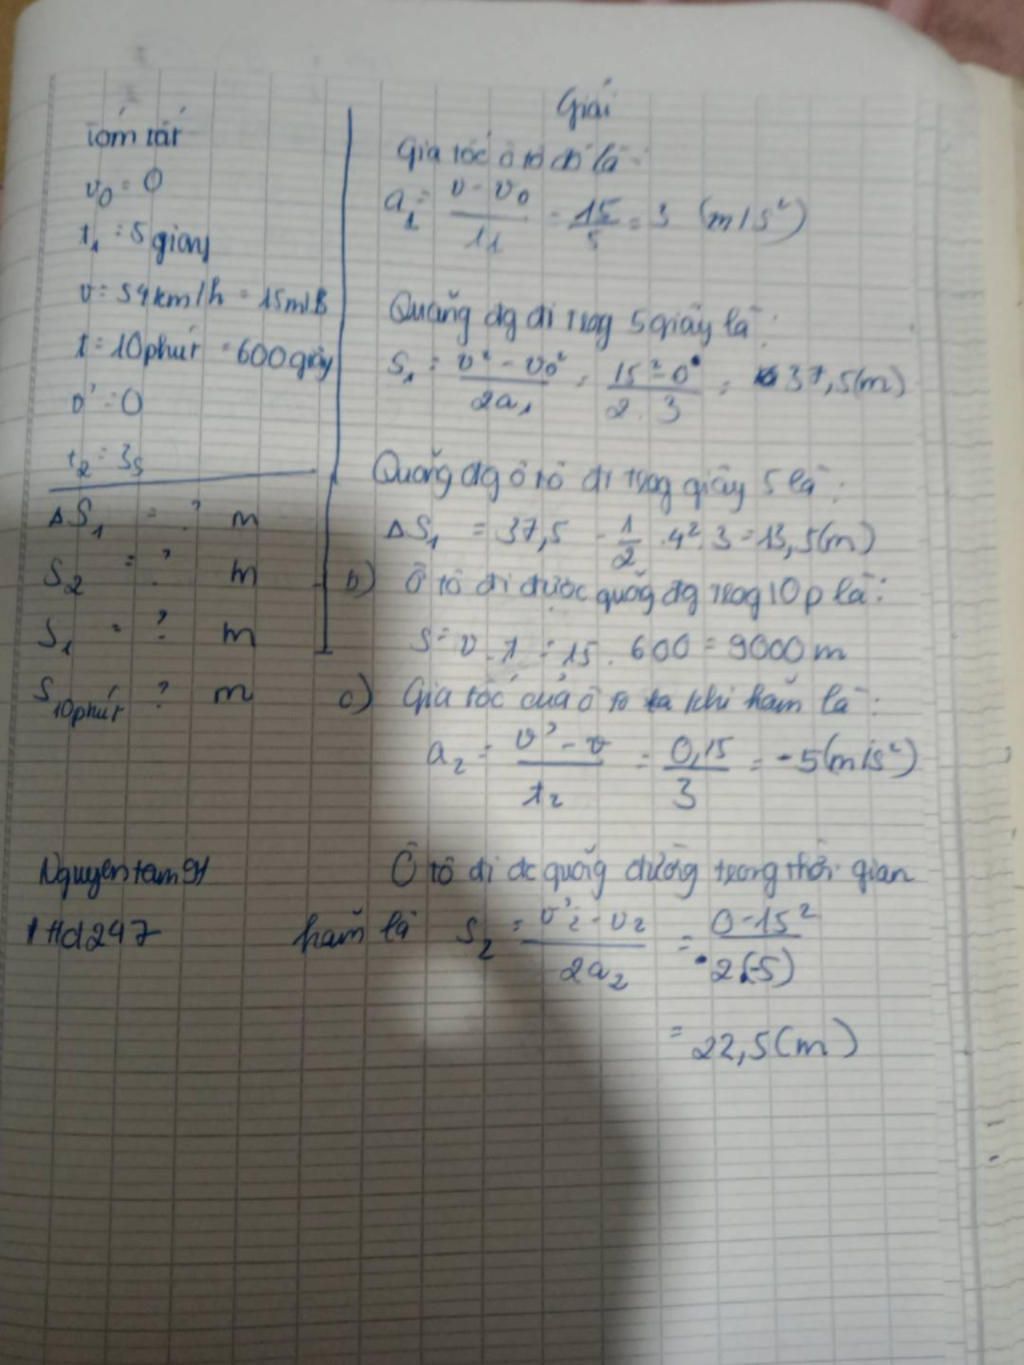 Giải
Tóm tắt
v₀ = 0
t₁ = 5 giây
v = 54km/h = 15m/s
t = 10 phút = 600 giây
v' = 0
t₂ = 3s
ΔS₁ = ? m
S₂ = ? m
S₁ = ? m
S10phút ? m
Gia tốc ô tô đó là:
a₁ = (v - v₀)/t₁ = 15/5 = 3 (m/s²)
Quãng đg đi trog 5 giây là:
S₁ = (v² - v₀²)/2a₁ = (15² - 0²)/2.3 = 37,5(m)
Quãng đg ô tô đi trog giây 5 là:
ΔS₁ = 37,5 - 1/2 .4².3 = 13,5(m)
b) Ô tô đi được quãg đg trog 10p là:
S = v.t = 15.600 = 9000m
c) Gia tốc của ô tô khi hãm là:
a₂ = (v' - v)/t₂ = 0,15/3 = -5(m/s²)
Ô tô đi đc quãng đường trong thời gian
hãm là S₂ = (v'₂ - v₂)/2a₂ = (0 - 15²)/2(-5)
= 22,5(m)
Nguyentam9H
1Hd247